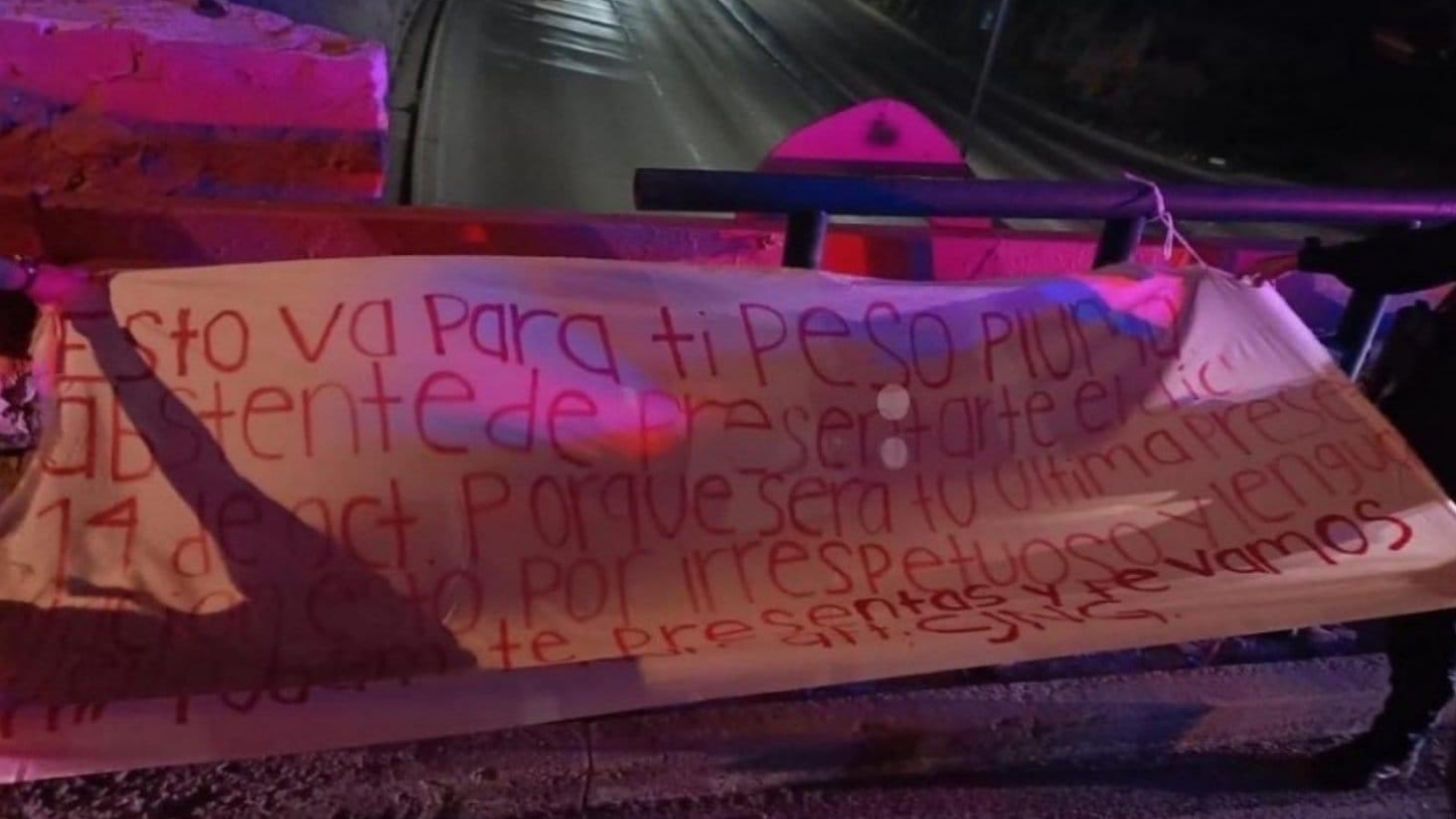 Esto va para ti Peso Pluma
abstente de presentarte el dic
14 de oct. Porque sera tu ultima prese
esto por irrespetuoso y lengu
te presentas y te vamos
att: CJNG.